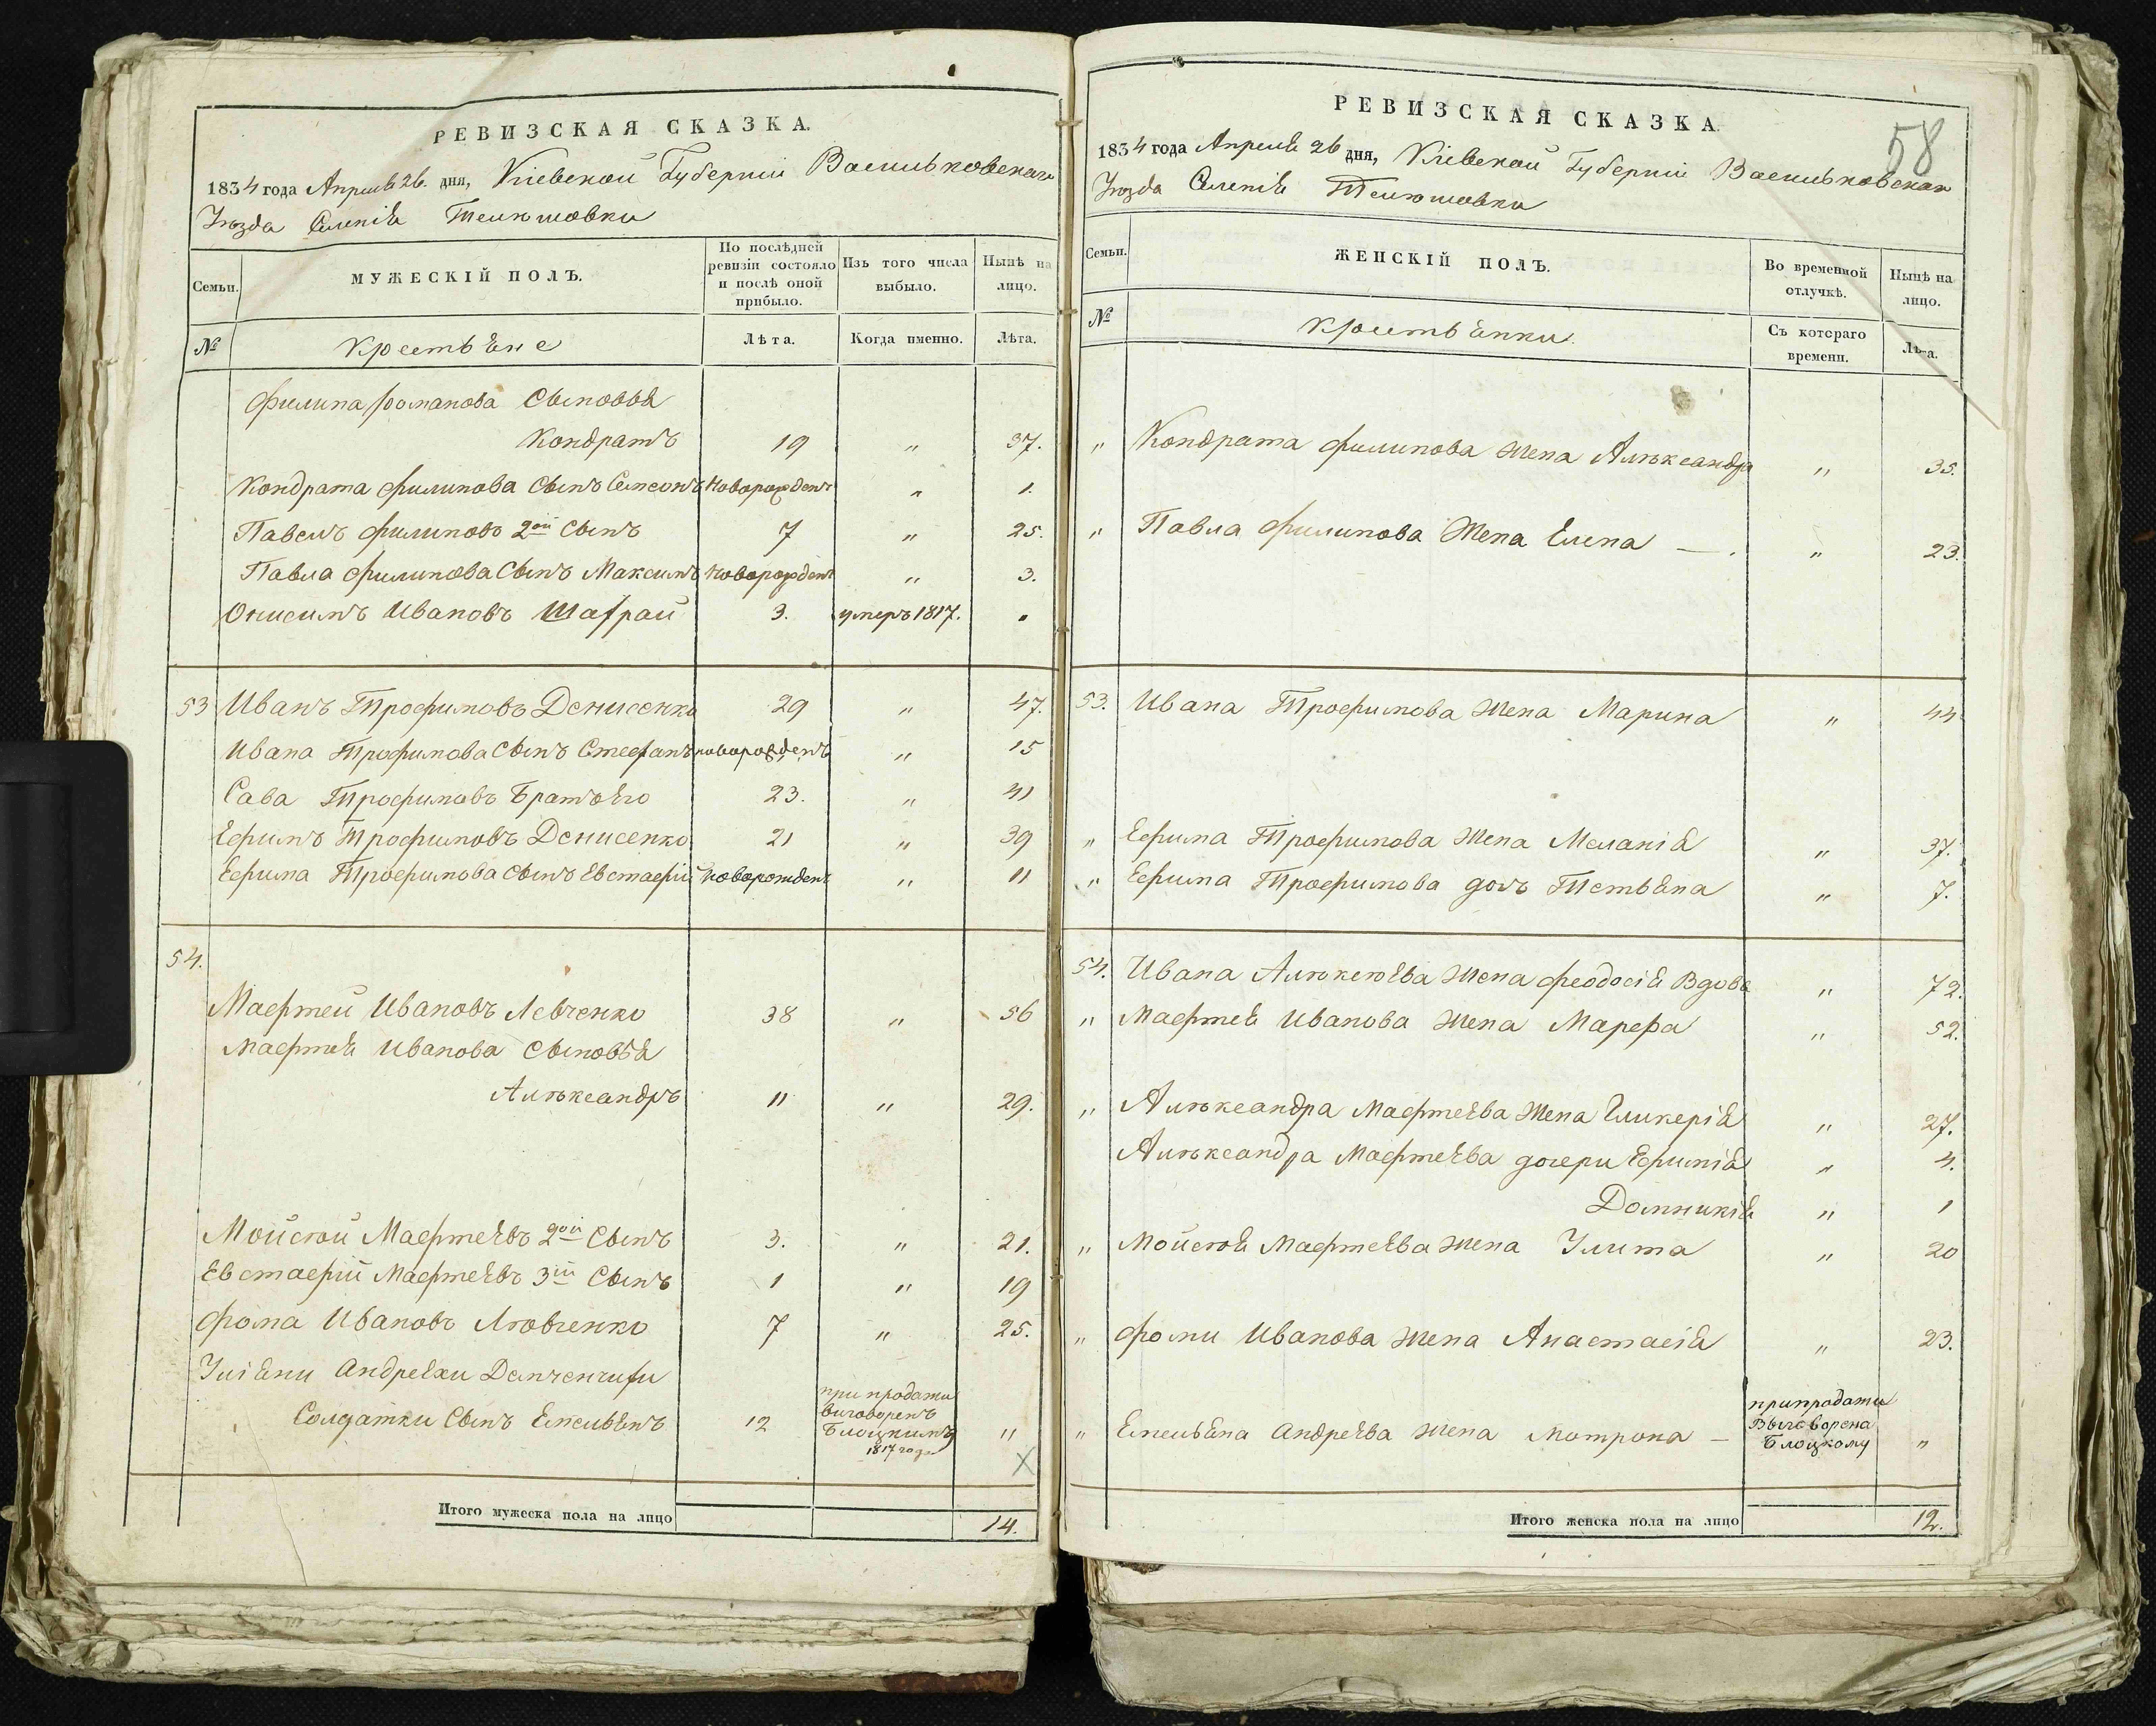 РЕВИЗСКАЯ СКАЗКА.
1834 года Апреля 26. дня, Кіевской Губерніи Васильковскаго
Уѣзда Селенія Телюшовки
Семьи.
МУЖЕСКІЙ ПОЛЪ.
По послѣдней ревизіи состояло и послѣ оной прибыло.
Изъ того числа выбыло.
Нынѣ на лицо.
№
Крестьяне
Лѣта.
Когда именно.
Лѣта.
Филипа Романова Сыновья
Кондратъ 19 " 37.
Кондрата Филипова Сынъ Семеонъ Новорожденъ " 1.
Павелъ Филиповъ 2ой Сынъ 7 " 25.
Павла Филипова Сынъ Максимъ Новорожденъ " 3.
Онисимъ Ивановъ Шаграй 3. умеръ 1817. "
53 Иванъ Трофимовъ Денисенко 29 " 47.
Ивана Трофимова Сынъ Стефанъ новорожденъ " 15
Сава Трофимовъ Братъ Его 23. " 41
Ефимъ Трофимовъ Денисенко 21 " 39
Ефима Трофимова Сынъ Евстафій новорожденъ " 11
54.
Мафтей Ивановъ Левченко 38 " 56
Мафтея Иванова Сыновья
Алѣксандръ 11 " 29.
Мойсѣй Мафтеѣвъ 2ой Сынъ 3. " 21.
Евстафій Мафтеѣвъ 3ій Сынъ 1 " 19
Фома Ивановъ Лѣвченко 7 " 25.
Уліяни Андреѣхи
Солдатки Сынъ Емельянъ 12 при продажи виговоренъ Блоцкимъ 1817 года "
Итого мужеска пола на лицо 14.
58
РЕВИЗСКАЯ СКАЗКА.
1834 года Апреля 26 дня, Кіевской Губерніи Васильковскаго
Уѣзда Селенія Телюшовки
Семьи.
ЖЕНСКІЙ ПОЛЪ.
Во временной отлучкѣ.
Нынѣ на лицо.
№
Крестьянки.
Съ котораго времени.
Лѣта.
" Кондрата Филипова Жена Алѣксандра " 35.
" Павла Филипова Жена Елена — " 23.
53. Ивана Трофимова Жена Марина " 44
" Ефима Трофимова Жена Меланія " 37.
" Ефима Трофимова дочь Тетьяна " 7.
54. Ивана Алѣксѣѣва Жена Феодосія Вдова " 72.
" Мафтея Иванова Жена Марфа " 52.
" Алѣксандра Мафтеѣва Жена Гликерія " 27.
Алѣксандра Мафтеѣва дочери Ефимія " 4.
Домникія " 1
" Мойсѣя Мафтеѣва Жена Улита " 20
" Фоми Иванова Жена Анастасія " 23.
" Емельяна Андреѣва Жена Мотрона — при продажи Выговорена Блоцкому "
Итого женска пола на лицо 12.